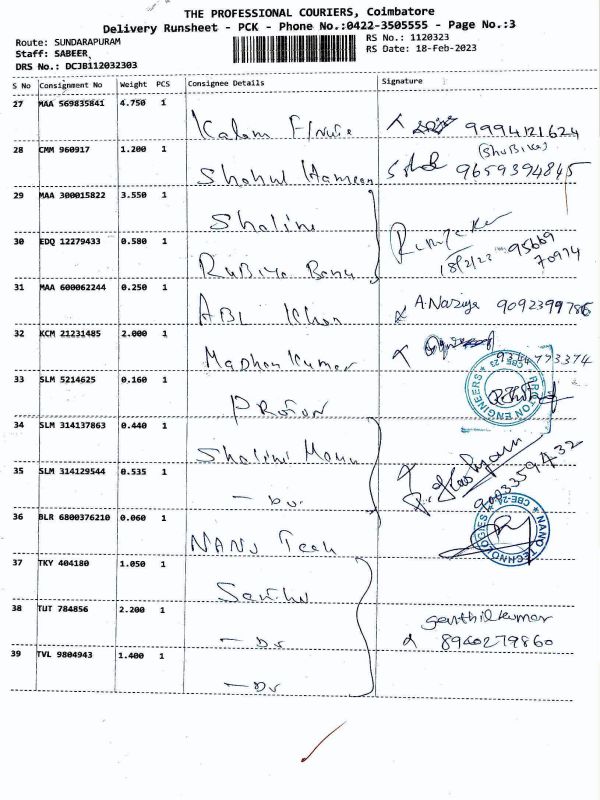 THE PROFESSIONAL COURIERS, Coimbatore
Delivery Runsheet - PCK - Phone No.:0422-3505555 - Page No.:3
Route: SUNDARAPURAM
RS No.: 1120323
Staff: SABEER,
RS Date: 18-Feb-2023
DRS No.: DCJB112032303
S No Consignment No Weight PCS Consignee Details Signature
27 MAA 569835841 4.750 1 Kalam 9994121624
28 CMM 960917 1.200 1 Shahul Hameen (BhuBika) 9659394845
29 MAA 300015822 3.550 1 Shalini
30 EDQ 12279433 0.580 1 Rubiya Banu 18/2/23 95669 70974
31 MAA 600062244 0.250 1 ABL Khan A.Naziya 9092399786
32 KCM 21231485 2.000 1 Madhan Kumar
33 SLM 5214625 0.160 1 Proton PROTON ENGINEERS
34 SLM 314137863 0.440 1 Shalini
35 SLM 314129544 0.535 1 - Do.
36 BLR 6800376210 0.060 1 NANO Tech NANO TECHNOLOGIES CBE-24
37 TKY 404180 1.050 1
38 TUT 784856 2.200 1 - Do Senthilkumar 8940279860
39 TVL 9804943 1.400 1 - Do